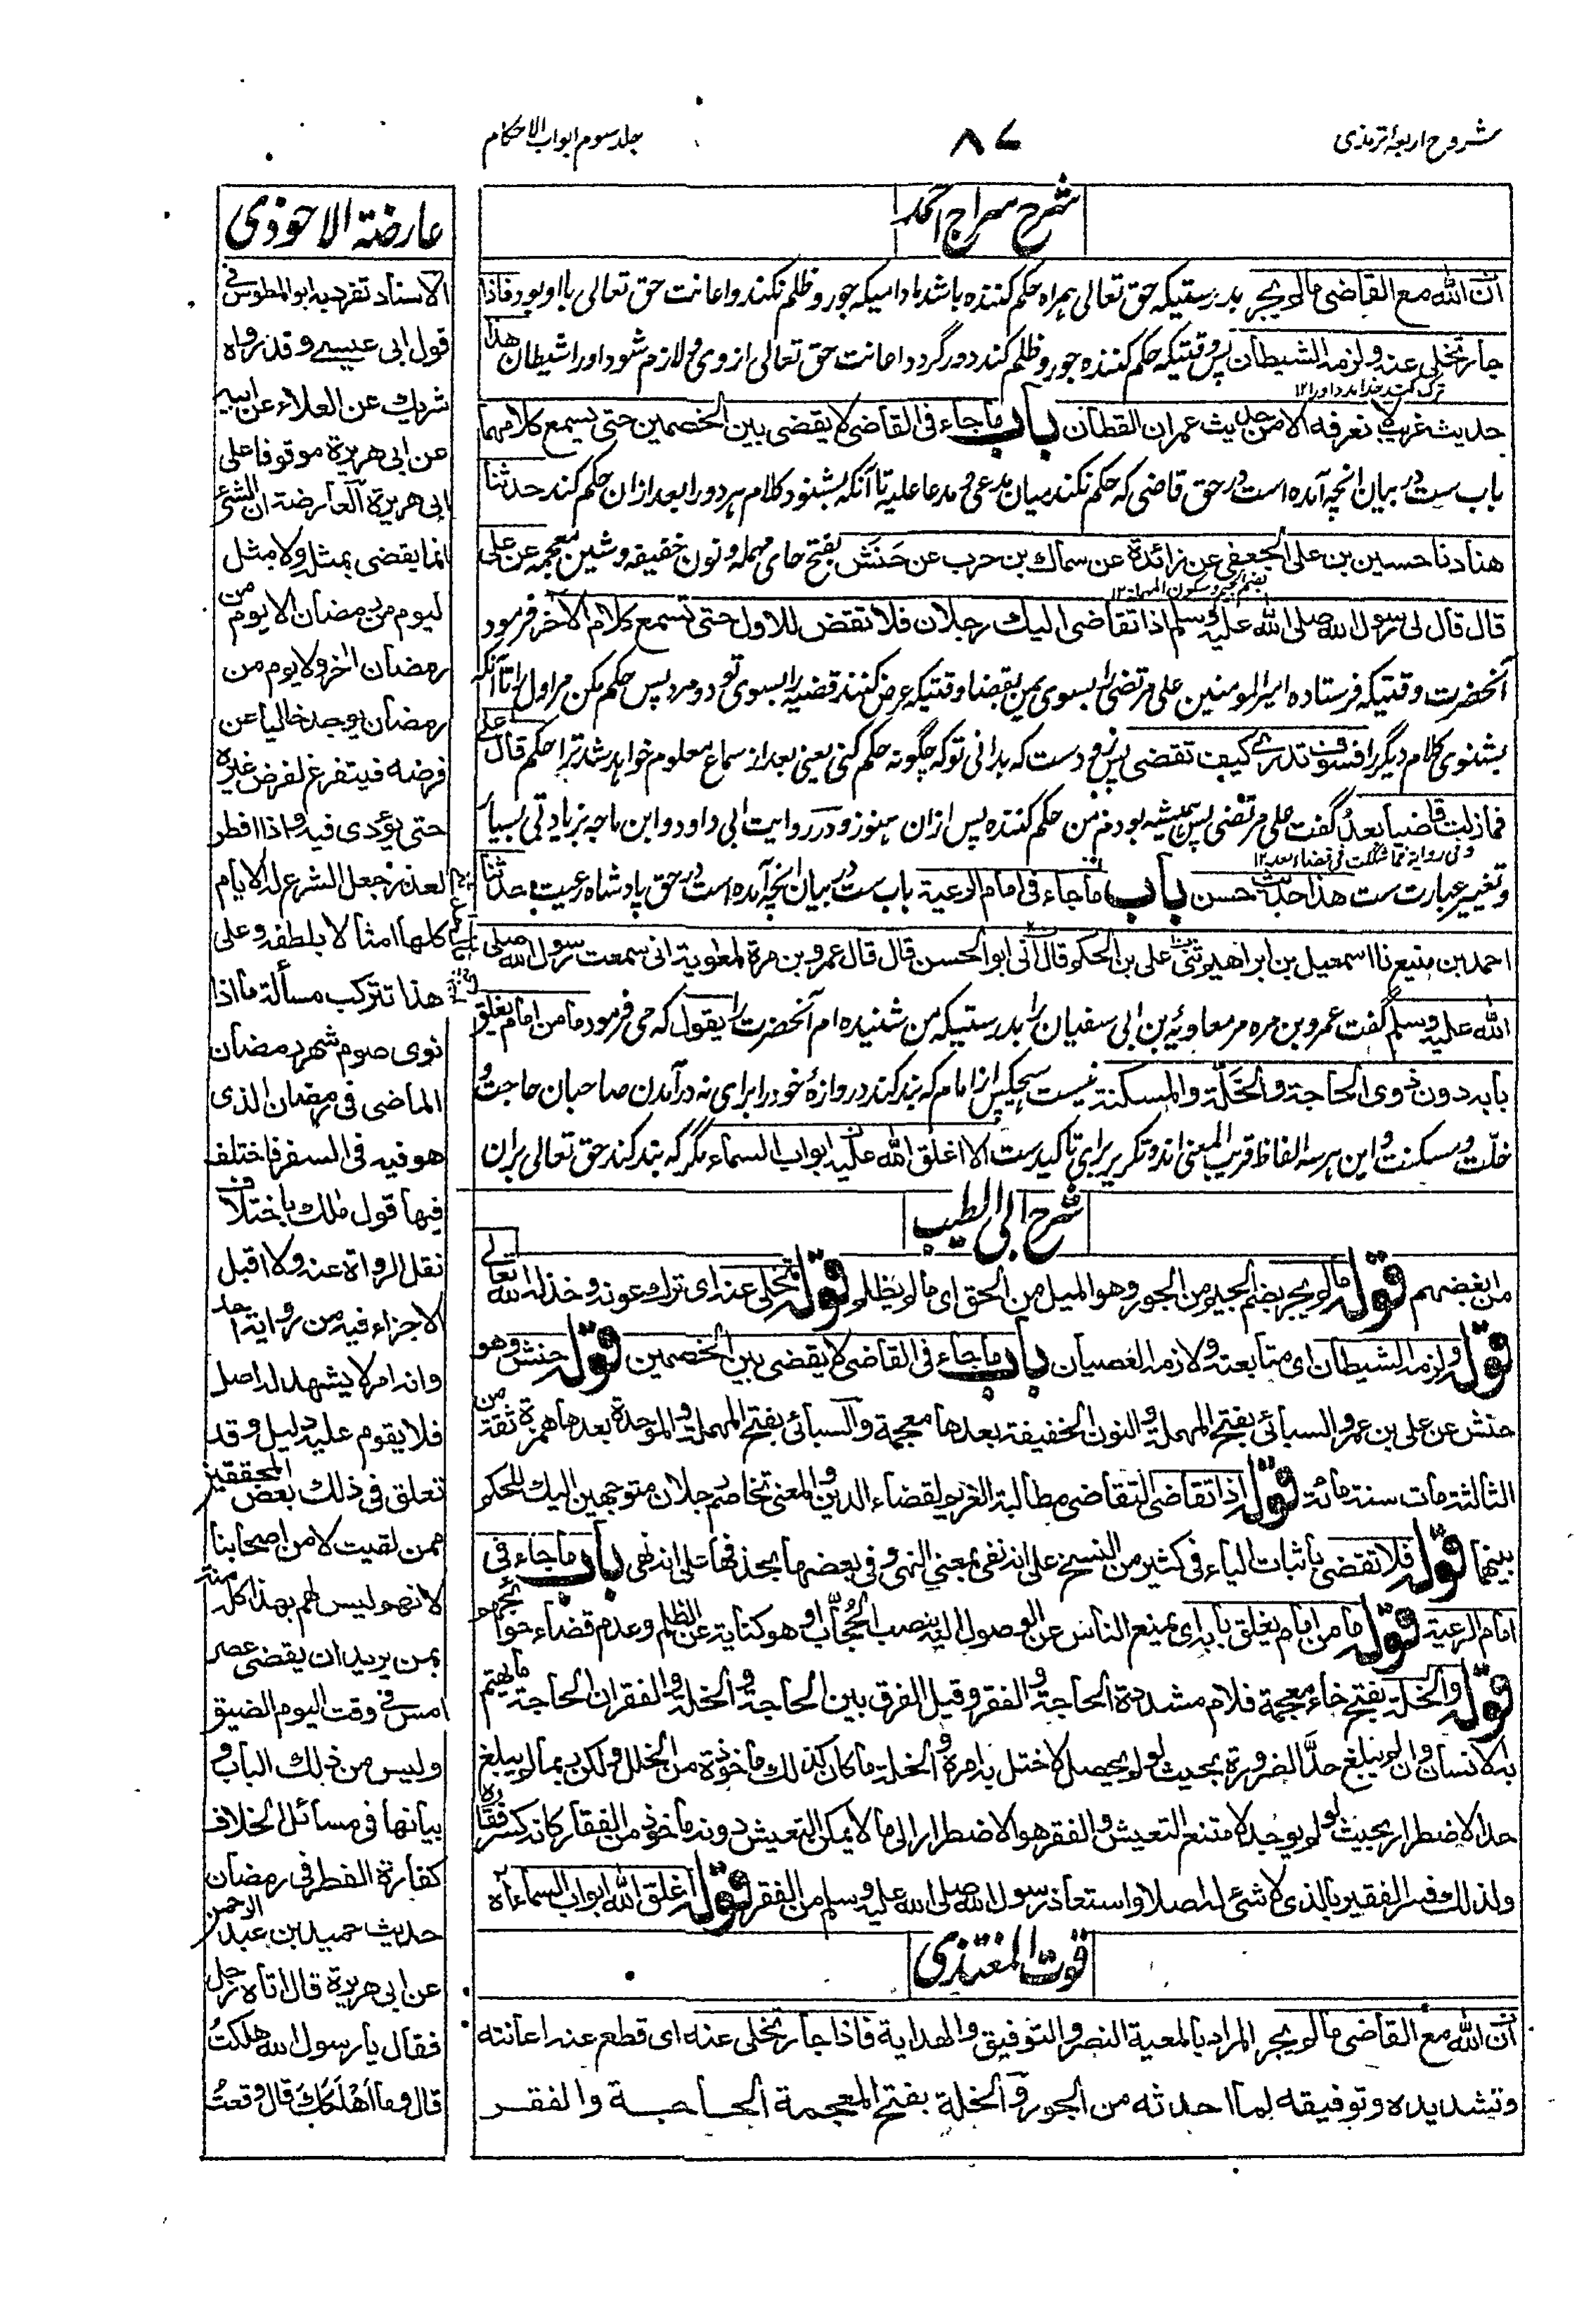 شروح اربعہ ترمذی
۸۷
جلد سوم ابواب الاحکام
شرح سراج احمد
ان اللہ مع القاضی مالم یجر بدرستیکہ حق تعالی ہمراہ حکم کنندہ باشد مادامیکہ جور و ظلم نکند و اعانت حق تعالی با او بود فاذا
جار تخلی عنہ و لزمہ الشیطان پس وقتیکہ حکم کنندہ جور و ظلم کند دور گردد اعانت حق تعالی از وی و لازم شود اورا شیطان ھذا
حدیث غریب لا نعرفہ الا من حدیث عمران القطان باب ماجاء فی القاضی لا یقضی بین الخصمین حتی یسمع کلامہما
باب ست در بیان انچہ آمدہ است در حق قاضی کہ حکم نکند میان مدعی و مدعا علیہ تا آنکہ بشنود کلام ہر دو را بعد ازان حکم کند حدثنا
ھناد نا حسین بن علی الجعفی عن زائدة عن سماک بن حرب عن حنش بفتح حای مہملہ و نون خفیفہ و شین معجمہ عن علی
بضم الجیم و سکون المہملہ ۱۲
قال قال لی رسول اللہ صلی اللہ علیہ وسلم اذا تقاضی الیک رجلان فلا تقض للاول حتی تسمع کلام الآخر فرمود
آنحضرت وقتیکہ فرستادہ امیر المومنین علی مرتضی را بسوی یمن بقضا وقتیکہ عرض کنند قضیہ را بسوی تو دو مرد پس حکم مکن مر اول را تا آنکہ
بشنوی کلام دیگر را فسوف تدری کیف تقضی پس زود ست کہ بدانی تو کہ چگونہ حکم کنی یعنی بعد از سماع معلوم خواہد شد ترا حکم قال علی
فمازلت قاضیا بعد گفت علی مرتضی پس ہمیشہ بودم من حکم کنندہ پس ازان ہنوز و در روایت ابی داود و ابن ماجہ بزیادتی بسیار
وفی روایة فما شککت فی قضاء بعد ۱۲
و تغییر عبارت ست ھذا حدیث حسن باب ماجاء فی امام الرعیة باب ست در بیان انچہ آمدہ است در حق پادشاہ رعیت حدثنا
احمد بن منیع نا اسمعیل بن ابراھیم ثنی علی بن الحکم قال ثنی ابو الحسن قال قال عمرو بن مرة لمعویة انی سمعت رسول اللہ صلی
اللہ علیہ وسلم گفت عمرو بن مرہ مر معاویہ بن ابی سفیان را بدرستیکہ من شنیدہ ام آنحضرت را یقول کہ می فرمود ما من امام یغلق
بابہ دون ذوی الحاجة والخلّة والمسکنة نیست ہیچکس از امام کہ بند کند دروازۂ خود را برای نہ درآمدن صاحبان حاجت و
خلّت و مسکنت و این ہر سہ الفاظ قریب المعنی اند و تکریر برای تاکید ست الا اغلق اللہ علیہ ابواب السماء مگر کہ بند کند حق تعالی بران
شرح ابی الطیب
من ابغضہم قولہ مالم یجر بضم الجیم من الجور و ھو المیل من الحق ای مالم یظلم قولہ تخلی عنہ ای ترک عونہ و خذلہ اللہ تعالی
قولہ و لزمہ الشیطان ای متابعتہ و لازمہ العصیان باب ماجاء فی القاضی لا یقضی بین الخصمین قولہ حنش و ھو
حنش عن علی بن عمرو السبائی بفتح المہملة و النون الخفیفة بعدھا معجمة والسبائی بفتح المہملة والموحدة بعدھا ھمزة ثقة من
الثالثة مات سنة مائة قولہ اذا تقاضی التقاضی مطالبة الغریم لقضاء الدین والمعنی تخاصم رجلان متوجھین الیک للحکم
بینھما قولہ فلا تقضی باثبات الیاء فی کثیر من النسخ علی انہ نفی بمعنی النھی و فی بعضھا بحذفھا علی انہ نھی باب ماجاء فی
امام الرعیة قولہ ما من امام یغلق بابہ ای یمنع الناس عن الوصول الیہ بنصب الحُجّاب او ھو کنایة عن الظلم و عدم قضاء حوائجھم
قولہ والخلة بفتح خاء معجمة فلام مشددة الحاجة و الفقر و قیل الفرق بین الحاجة و الخلة و الفقر ان الحاجة ما یھتم
بہ الانسان وان لم یبلغ حدّ الضرورة بحیث لو لم یحصل لاختل بہ امرہ و الخلة ما کان کذلک ماخوذة من الخلل ولکن ربما لم یبلغ
حد الاضطرار بحیث لو لم یوجد لامتنع التعیش والفقر ھو الاضطرار الی مالا یمکن التعیش دونہ ماخوذ من الفقار کانہ کسر فقارہ
ولذلک فسر الفقیر بالذی لا شئ لہ اصلا واستعاذ رسول اللہ صلی اللہ علیہ وسلم من الفقر قولہ اغلق اللہ ابواب السماء اہ
قوت المغتذی
ان اللہ مع القاضی مالم یجر المراد بالمعیة النصر والتوفیق والھدایة فاذا جار تخلی عنہ ای قطع عنہ اعانتہ
و تشدیدہ و توفیقہ لما احدثہ من الجور والخلة بفتح المعجمة الحاجة والفقر
عارضة الاحوذی
الاسناد تفرد بہ ابو المطوس فی
قول ابی عیسی وقد رواہ
شریک عن العلاء عن ابیہ
عن ابی ھریرة موقوفا علی
ابی ھریرة العارضة ان الشئ
انما یقضی بمثلہ ولا مثل
لیوم من رمضان الا یوم من
رمضان اخر ولا یوم من
رمضان یوجد خالیا عن
فرضہ فیتفرغ لفرض غیرہ
حتی یؤدی فیہ واذا افطر
لعذر جعل الشرع لہ الایام
کلھا امثالا بلطفہ وعلی
ھذا تترکب مسألة ما اذا
نوی صوم شھر رمضان
الماضی فی رمضان الذی
ھو فیہ فی السفر فاختلف
فیھا قول ملک باختلاف
نقل الرواة عنہ ولا اقبل
الاجزاء فیہ من روایة احد
وانہ امر لا یشھد لہ اصل
فلا یقوم علیہ دلیل وقد
تعلق فی ذلک بعض المحققین
ممن لقیت لا من اصحابنا
لانھم لیس لھم بھذا کلہ منة
بمن یرید ان یقضی عصر
امس فی وقت الیوم الضیق
ولیس من ذلک الباب و
بیانھا فی مسائل الخلاف
کفارة الفطر فی رمضان
حدیث حمید بن عبد الرحمن
عن ابی ھریرة قال اتاہ رجل
فقال یا رسول اللہ ھلکتُ
قال وما اَھْلَکَکَ قال وقعتُ